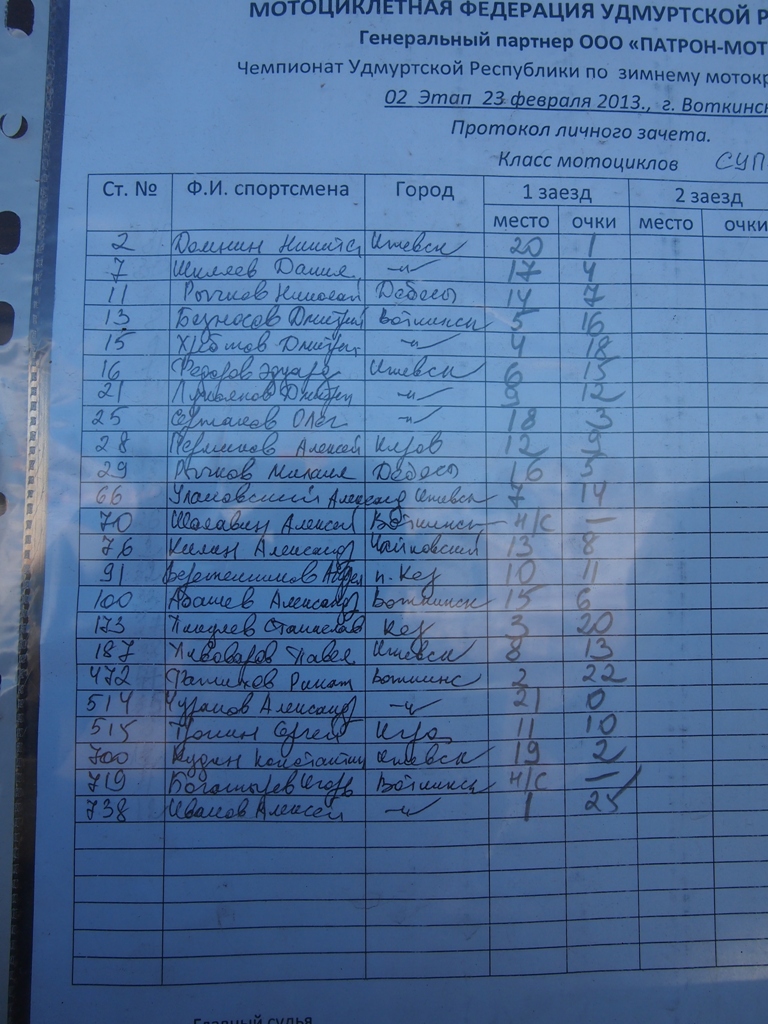 МОТОЦИКЛЕТНАЯ ФЕДЕРАЦИЯ УДМУРТСКОЙ Р
Генеральный партнер ООО «ПАТРОН-МОТ
Чемпионат Удмуртской Республики по зимнему мотокр
02 Этап 23 февраля 2013., г. Воткинск
Протокол личного зачета.
Класс мотоциклов СУП
Ст. № Ф.И. спортсмена Город 1 заезд 2 заезд
место очки место очки
2 Домнин Никита Ижевск 20 1
7 Шиляев Данил -"- 17 4
11 Рычков Николай Дебесы 14 7
13 Безносов Дмитрий Воткинск 5 16
15 Дмитрий -"- 4 18
16 Федоров Эдуард Ижевск 6 15
21 Лукоянов Дмитрий -"- 9 12
25 Олег -"- 18 3
28 Пермяков Алексей Киров 12 9
29 Рычков Михаил Дебесы 16 5
66 Улановский Александр Ижевск 7 14
70 Шалавин Алексей Воткинск н/с —
76 Килин Александр Чайковский 13 8
91 Веретенников п. Кез 10 11
100 Абашев Александр Воткинск 15 6
173 Станислав Кез 3 20
187 Пивоваров Павел Ижевск 8 13
472 Фатихов Ринат Воткинс 2 22
514 Чураков Александр -"- 21 0
515 Тронин Сергей Игра 11 10
700 Кудин Константин Ижевск 19 2
719 Богатырев Игорь Воткинск н/с —
738 Иванов Алексей -"- 1 25
Главный судья